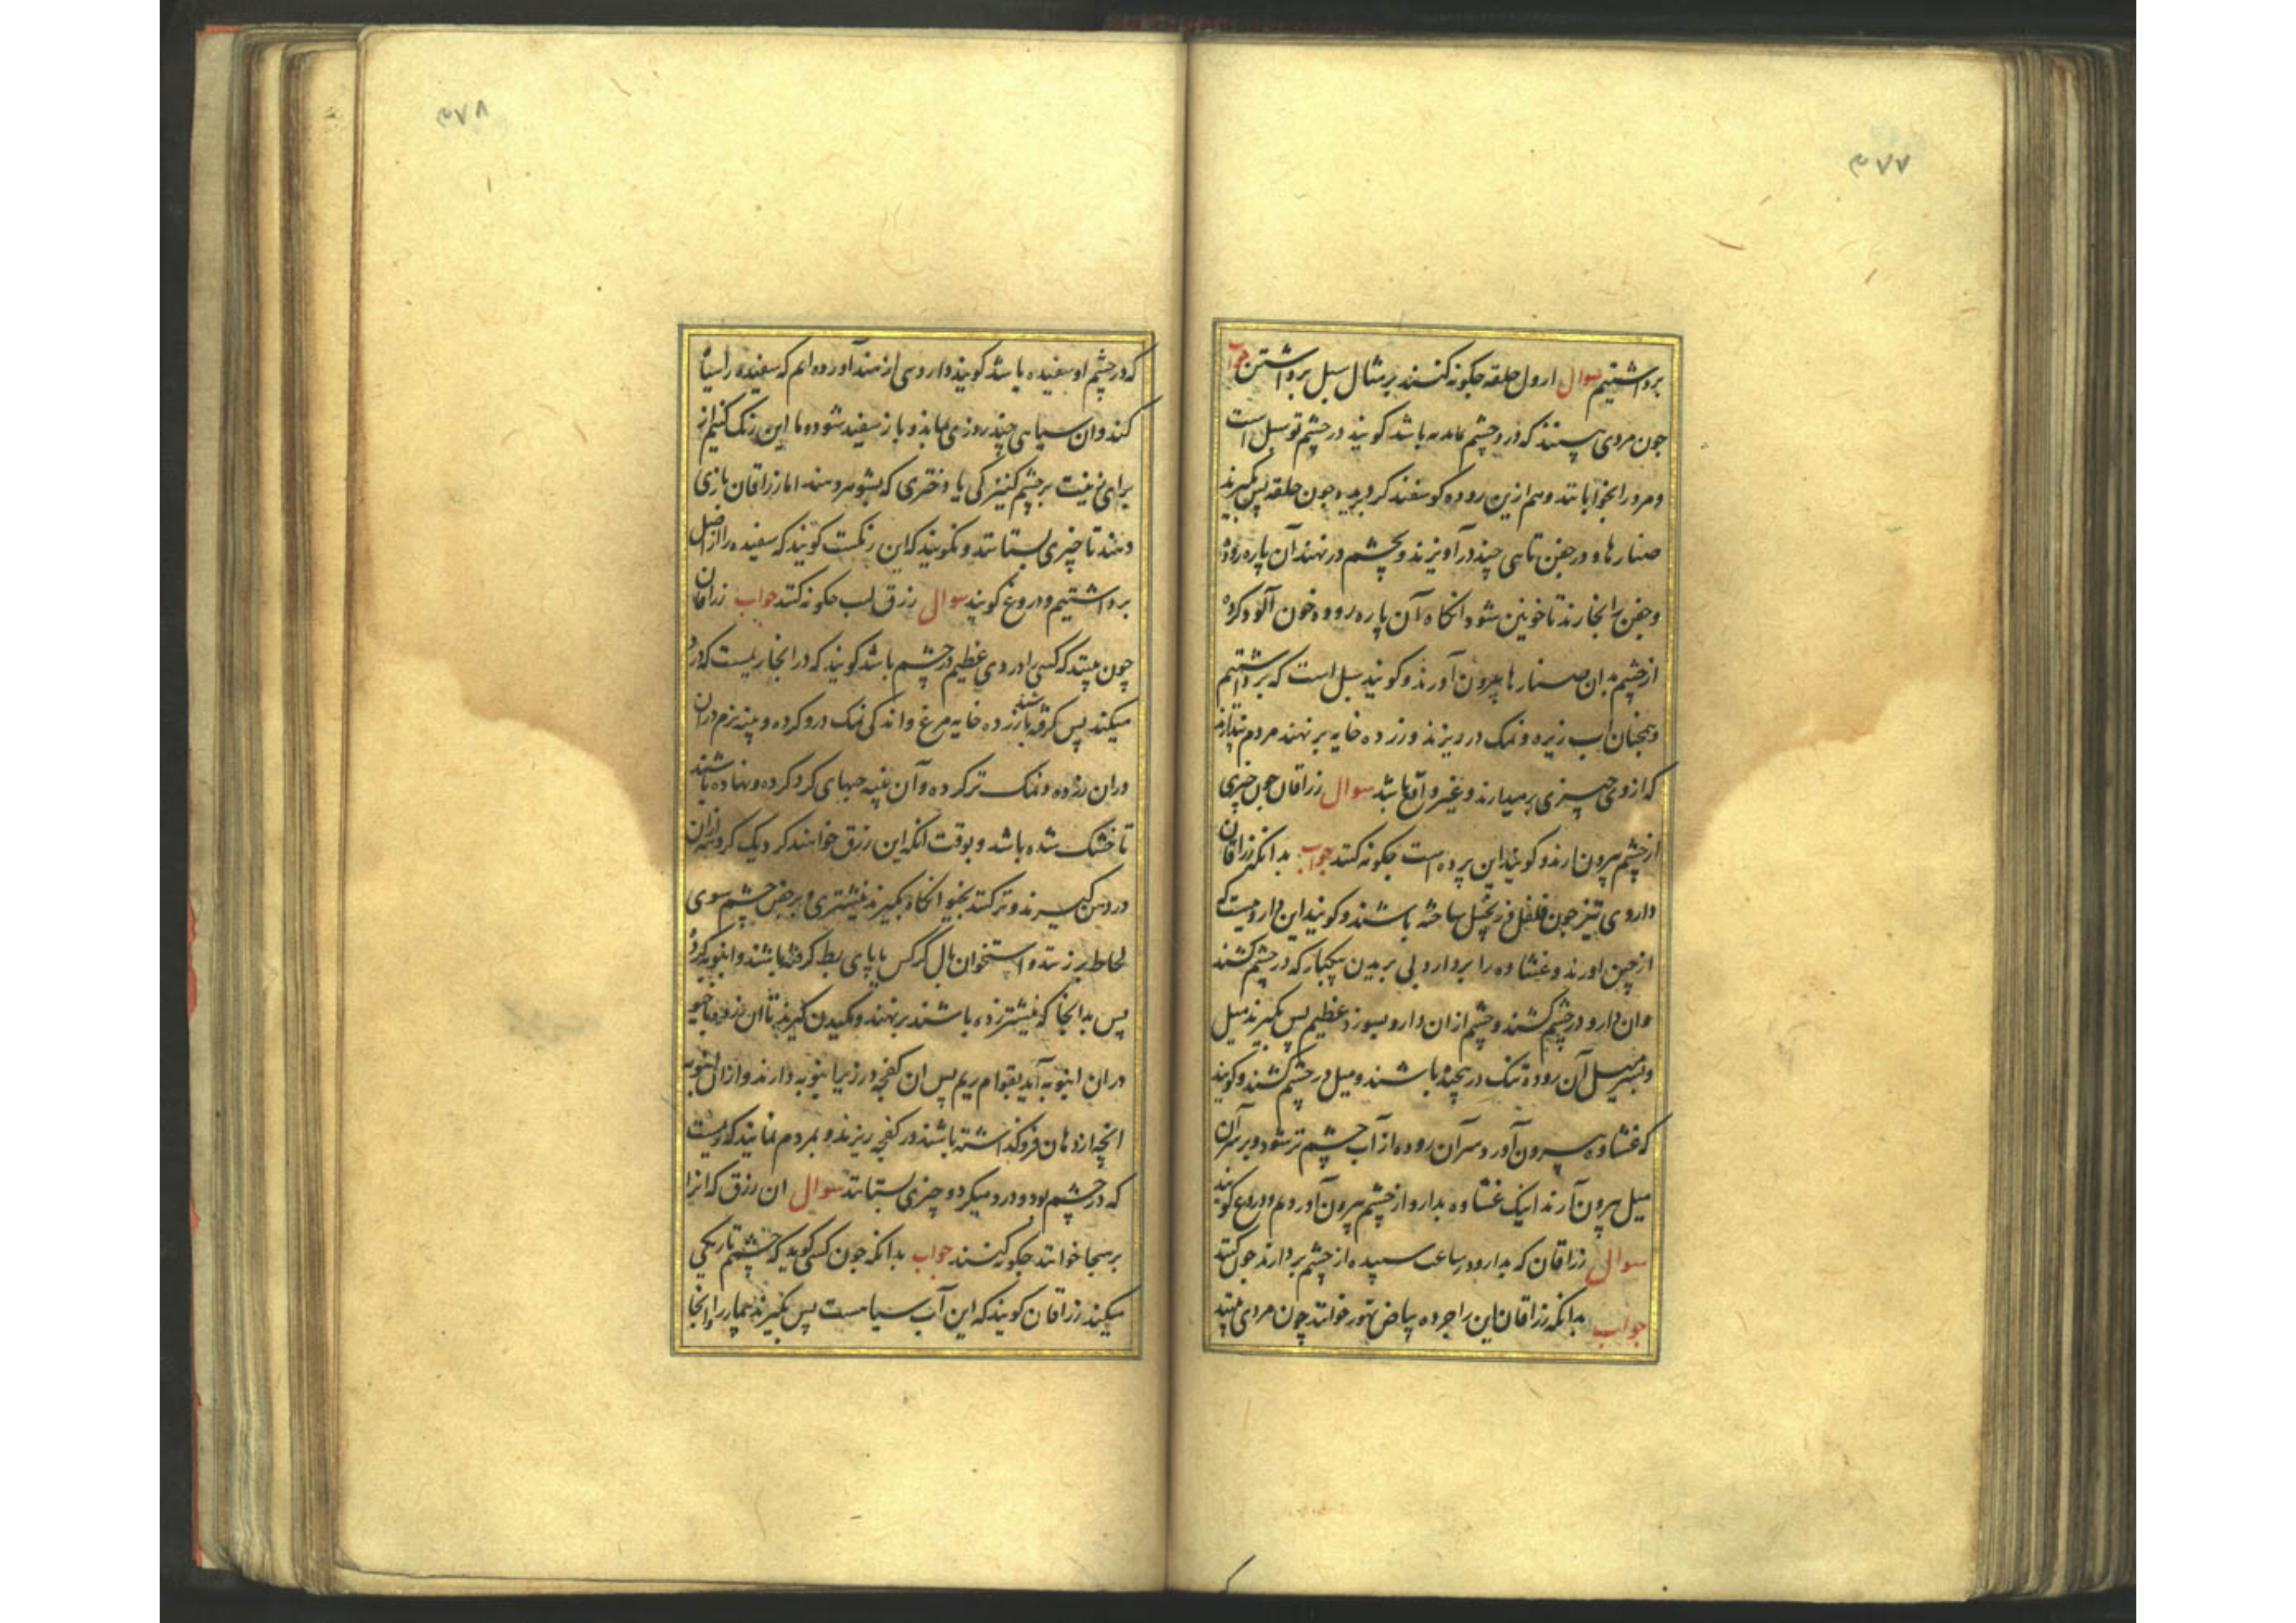 ۳۷۷
برداشتیم سوال ارول حلقه جکونه کنند بر مثال سبل برداشتن جواب
جون مردی بینند که در چشم باشد کویند در چشم تو سبل است
و مرد را بخوابانند و هم ازین روده کوسفند کردیده جون حلقه پس بکیرند
صنارها و در جفن تاهی چند در آویزند و بچشم در نهند آن پاره روده
و جفن را بخارند تا خونین شود انکاه آن پاره روده خون آلود کرده
از چشم بدان صنارها بیرون آورند و کویند سبل است که برداشتیم
و همجنان آب زیره و نمک در ریزند و زرده خایه بر نهند مردم پندارند
که از وی چیزی برمیدارند و غیر واقع باشد سوال زراقان جون چیزی
از چشم بیرون ارند و کویند این پرده است جکونه کنند جواب بدانکه زراقان
داروی تیز جون فلفل و زنجبیل ساخته باشند و کویند این داروییست که
از چین اورند و غشاوه را بردارد بی بریدن یکبار که در چشم کشند
وان دارو در چشم کشند و چشم ازان دارو بسوزد عظیم پس بکیرند میل
و بسر میل آن روده تنک در پیچیده باشند و میل در چشم کشند و کویند
که غشاوه بیرون آورد سر آن روده از آب چشم تر شود و بر سر آن
میل بیرون آرند اینک غشاوه بدارو از چشم بیرون آوردم و دروغ کویند
سوال زراقان که بدارو در ساعت سپیده از چشم بردارند جون کنند
جواب بدانکه زراقان این را جرده بیاض تهور خوانند چون مردی بینند
۳۷۸
که در چشم او سفیده باشد کویند داروی از هند آورده ام که سفیده را سیاه
کند وان سیاهی چند روزی بماند و باز سفید شود و ما این رنک کنیم از
برای زینت بر چشم کنیزکی یا دختری که بشوهر دهند اما زراقان بازی
دهند تا چیزی بستانند و نکویند که این رنکست کویند که سفیده را از اصل
برداشتیم و دروغ کویند سوال رزق لب جکونه کنند جواب زراقان
چون بینند که کسی را دردی عظیم در چشم باشد کویند که در انجا ریمست که درد
میکند پس کرفته باشند زرده خایه مرغ و اندکی نمک درو کرده و پنبه نرم دران
دران زرده و نمک تر کرده و آن پنبه حبهای کرد کرده و نهاده باشند
تا خشک شده باشد و بوقت انکه این رزق خواهند کرد یک کروهه ازان
در دهن کیرند و تر کنند بخیو انکاه بکیرند نیشتری و بر جفن چشم سوی
لحاظ بر زنند و استخوان بال کرکس یا پای بط کرفته باشند و انبوبه کرده
پس بدانجا که نیشتر زده باشند بر نهند و مکیدن کیرند تا ان زرده با خیو
دران انبوبه آید بقوام ریم پس ان کفچه در زیر انبوبه دارند و ازان انبوبه
انچه از دهان فرو کذاشته باشند در کفچه ریزند و بمردم نمایند که ریمست
که در چشم بود و درد میکرد و چیزی بستانند سوال ان رزق که انرا
برهجا خوانند جکونه کنند جواب بدانکه جون کسی کوید که چشمم تاریکی
میکند زراقان کویند که این آب سیاهست پس بکیرند بیمار را و انجا